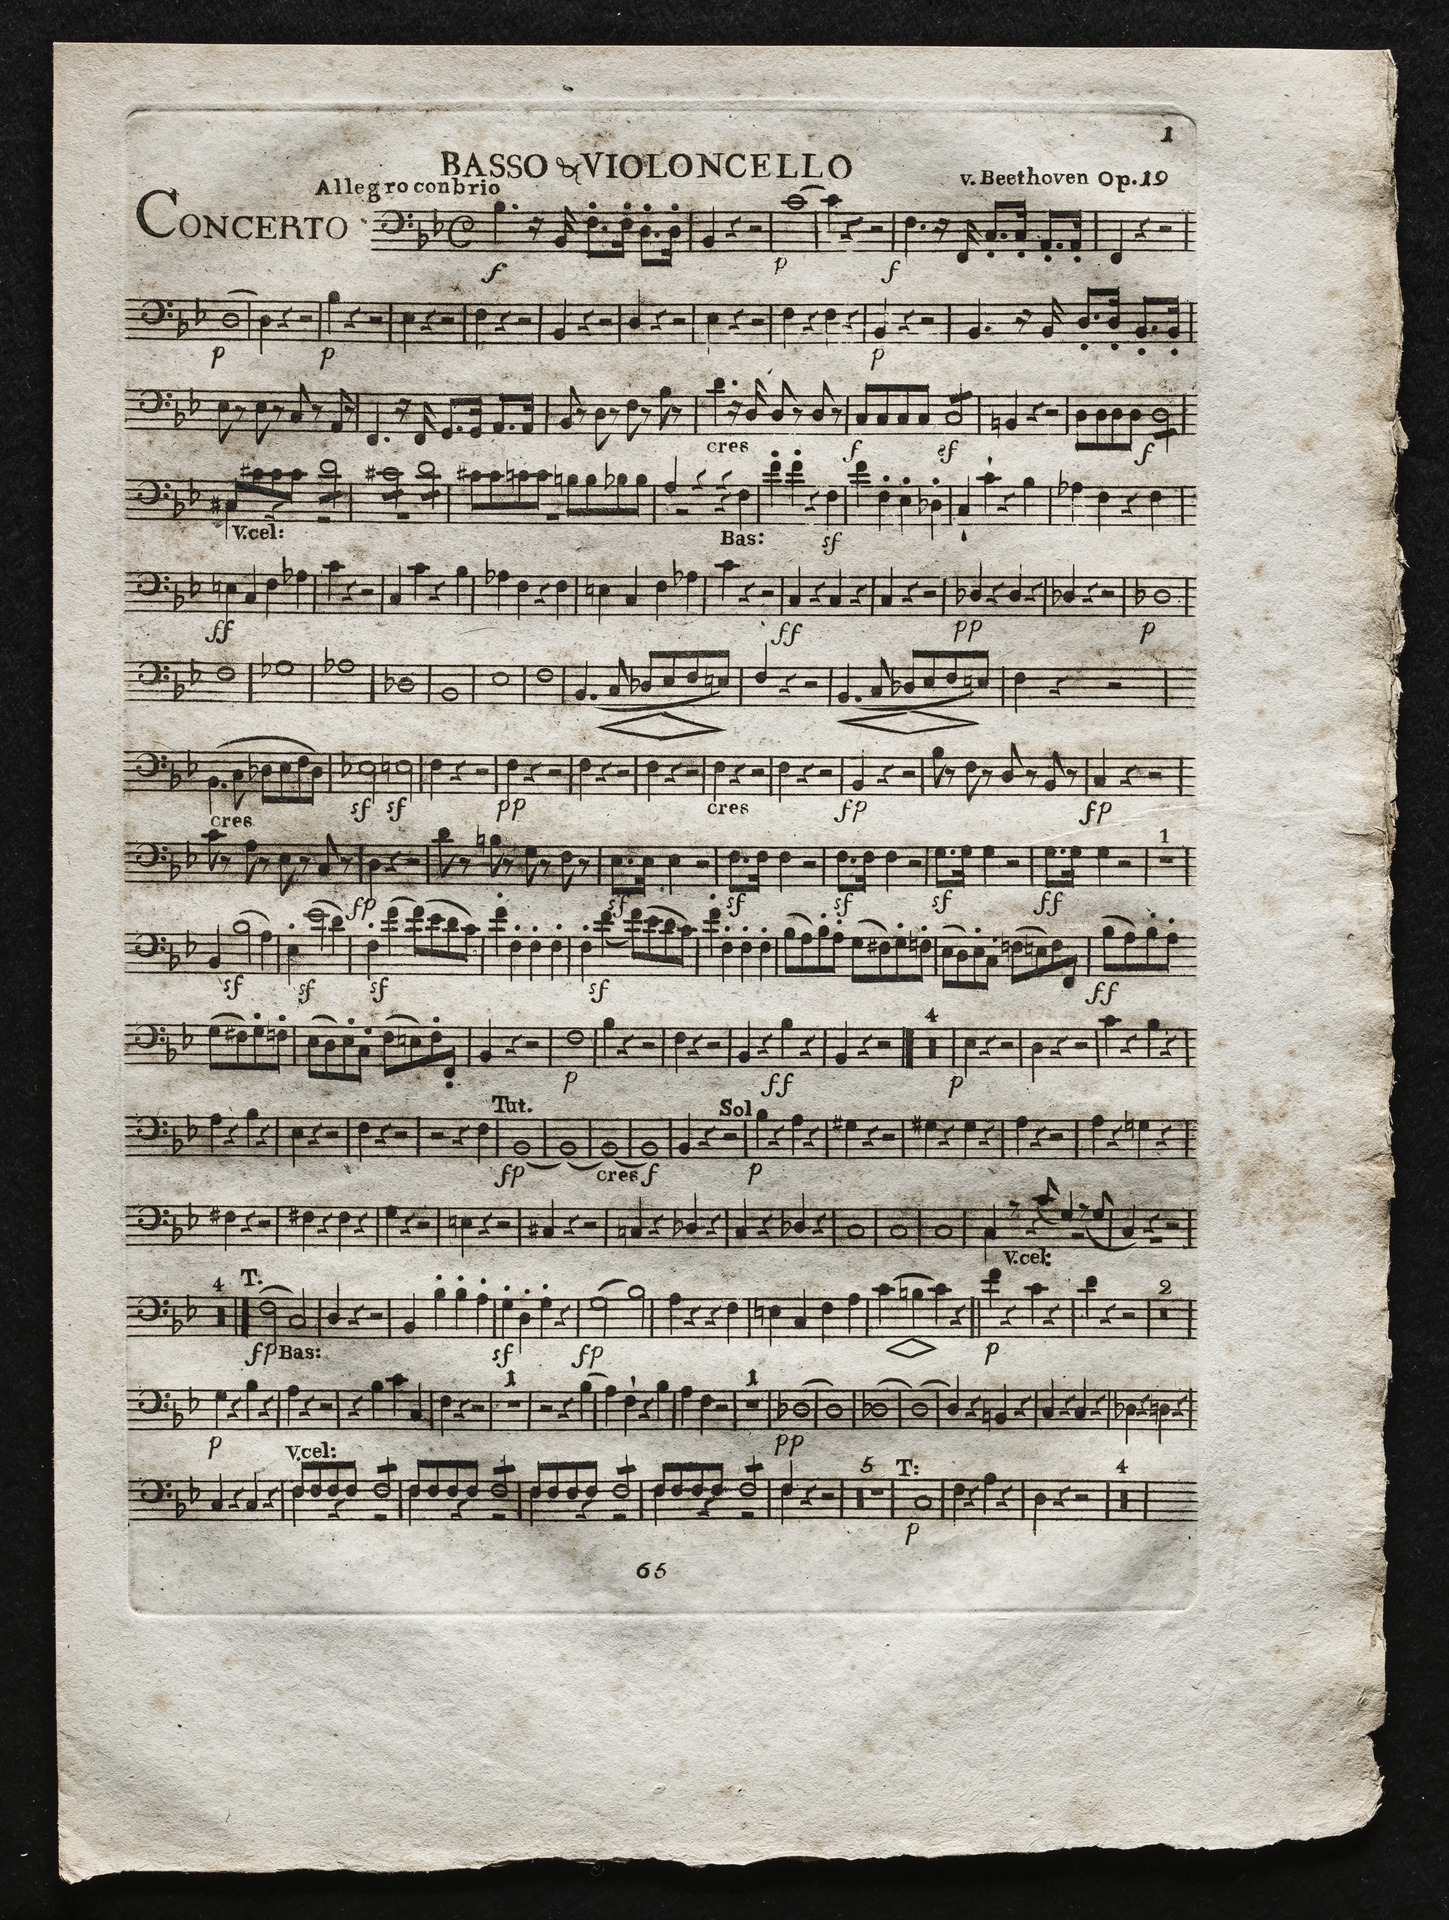 1
BASSO & VIOLONCELLO
Allegro con brio
v. Beethoven Op. 19
CONCERTO
f p f
p p p
cres f sf f
V.cel: Bas: sf
ff ff pp p
cres sf sf pp cres fp fp
1
fp sf sf sf sf ff
sf sf sf sf ff
4
p ff p
Tut. Sol
fp cres f p
V.cel:
4 T. 2
fp Bas: sf fp p
1 1
p pp
V.cel: 5 T: 4
p
65